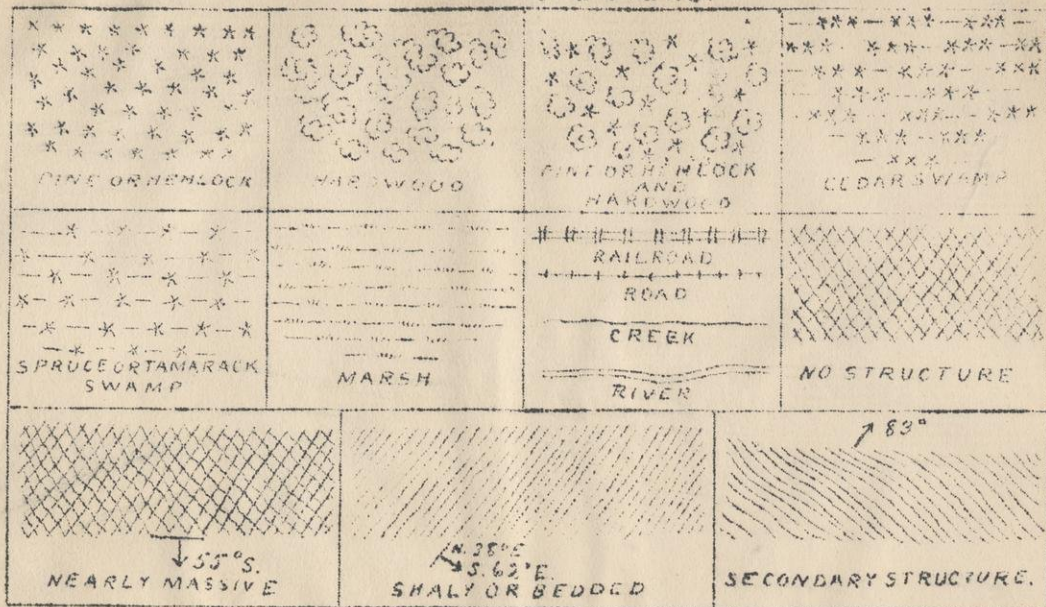 PINE OR HEMLOCK
HARDWOOD
PINE OR HEMLOCK
AND
HARDWOOD
CEDAR SWAMP
SPRUCE OR TAMARACK
SWAMP
MARSH
RAILROAD
ROAD
CREEK
RIVER
NO STRUCTURE
55°S.
NEARLY MASSIVE
N. 28°E
S. 62°E.
SHALY OR BEDDED
83°
SECONDARY STRUCTURE.